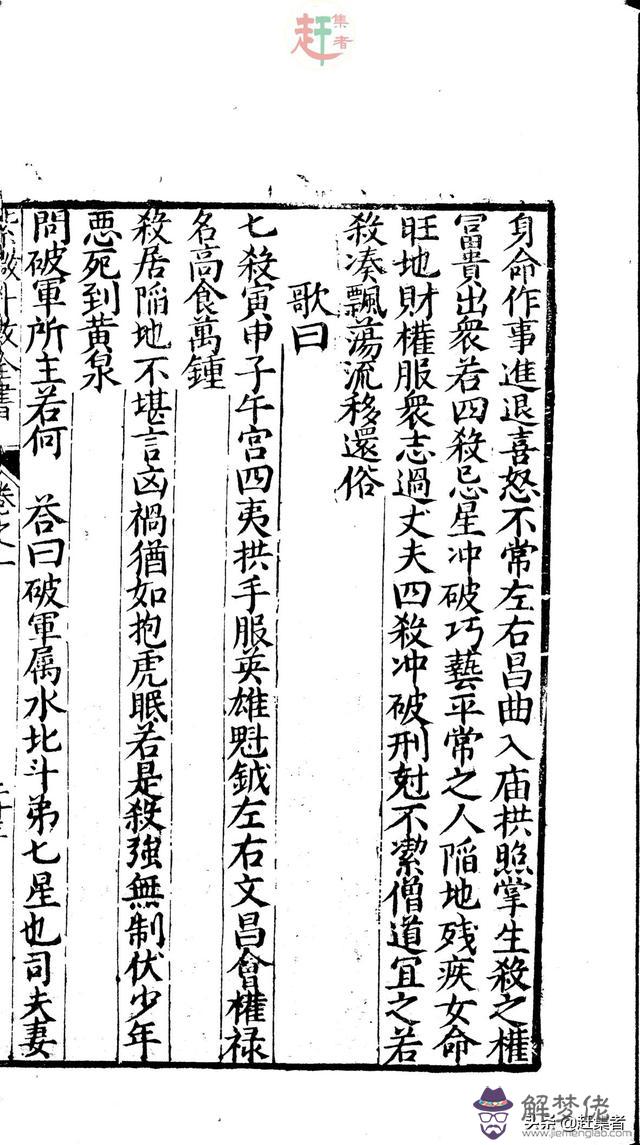 赶集者
身命作事進退喜怒不常左右昌曲入庙拱照掌生殺之權
冨貴出衆若四殺忌星冲破巧藝平常之人陥地残疾女命
旺地財權服衆志過丈夫四殺冲破刑尅不潔僧道宜之若
殺凑飄蕩流移還俗
歌曰
七殺寅申子午宮四夷拱手服英雄魁鉞左右文昌會權禄
名高食萬鍾
殺居陥地不堪言凶禍猶如抱虎眠若是殺強無制伏少年
悪死到黄泉
問破軍所主若何 答曰破軍属水北斗弟七星也司夫妻
卷之一
解梦佬
www.jiemenglab.com
头条@赶集者